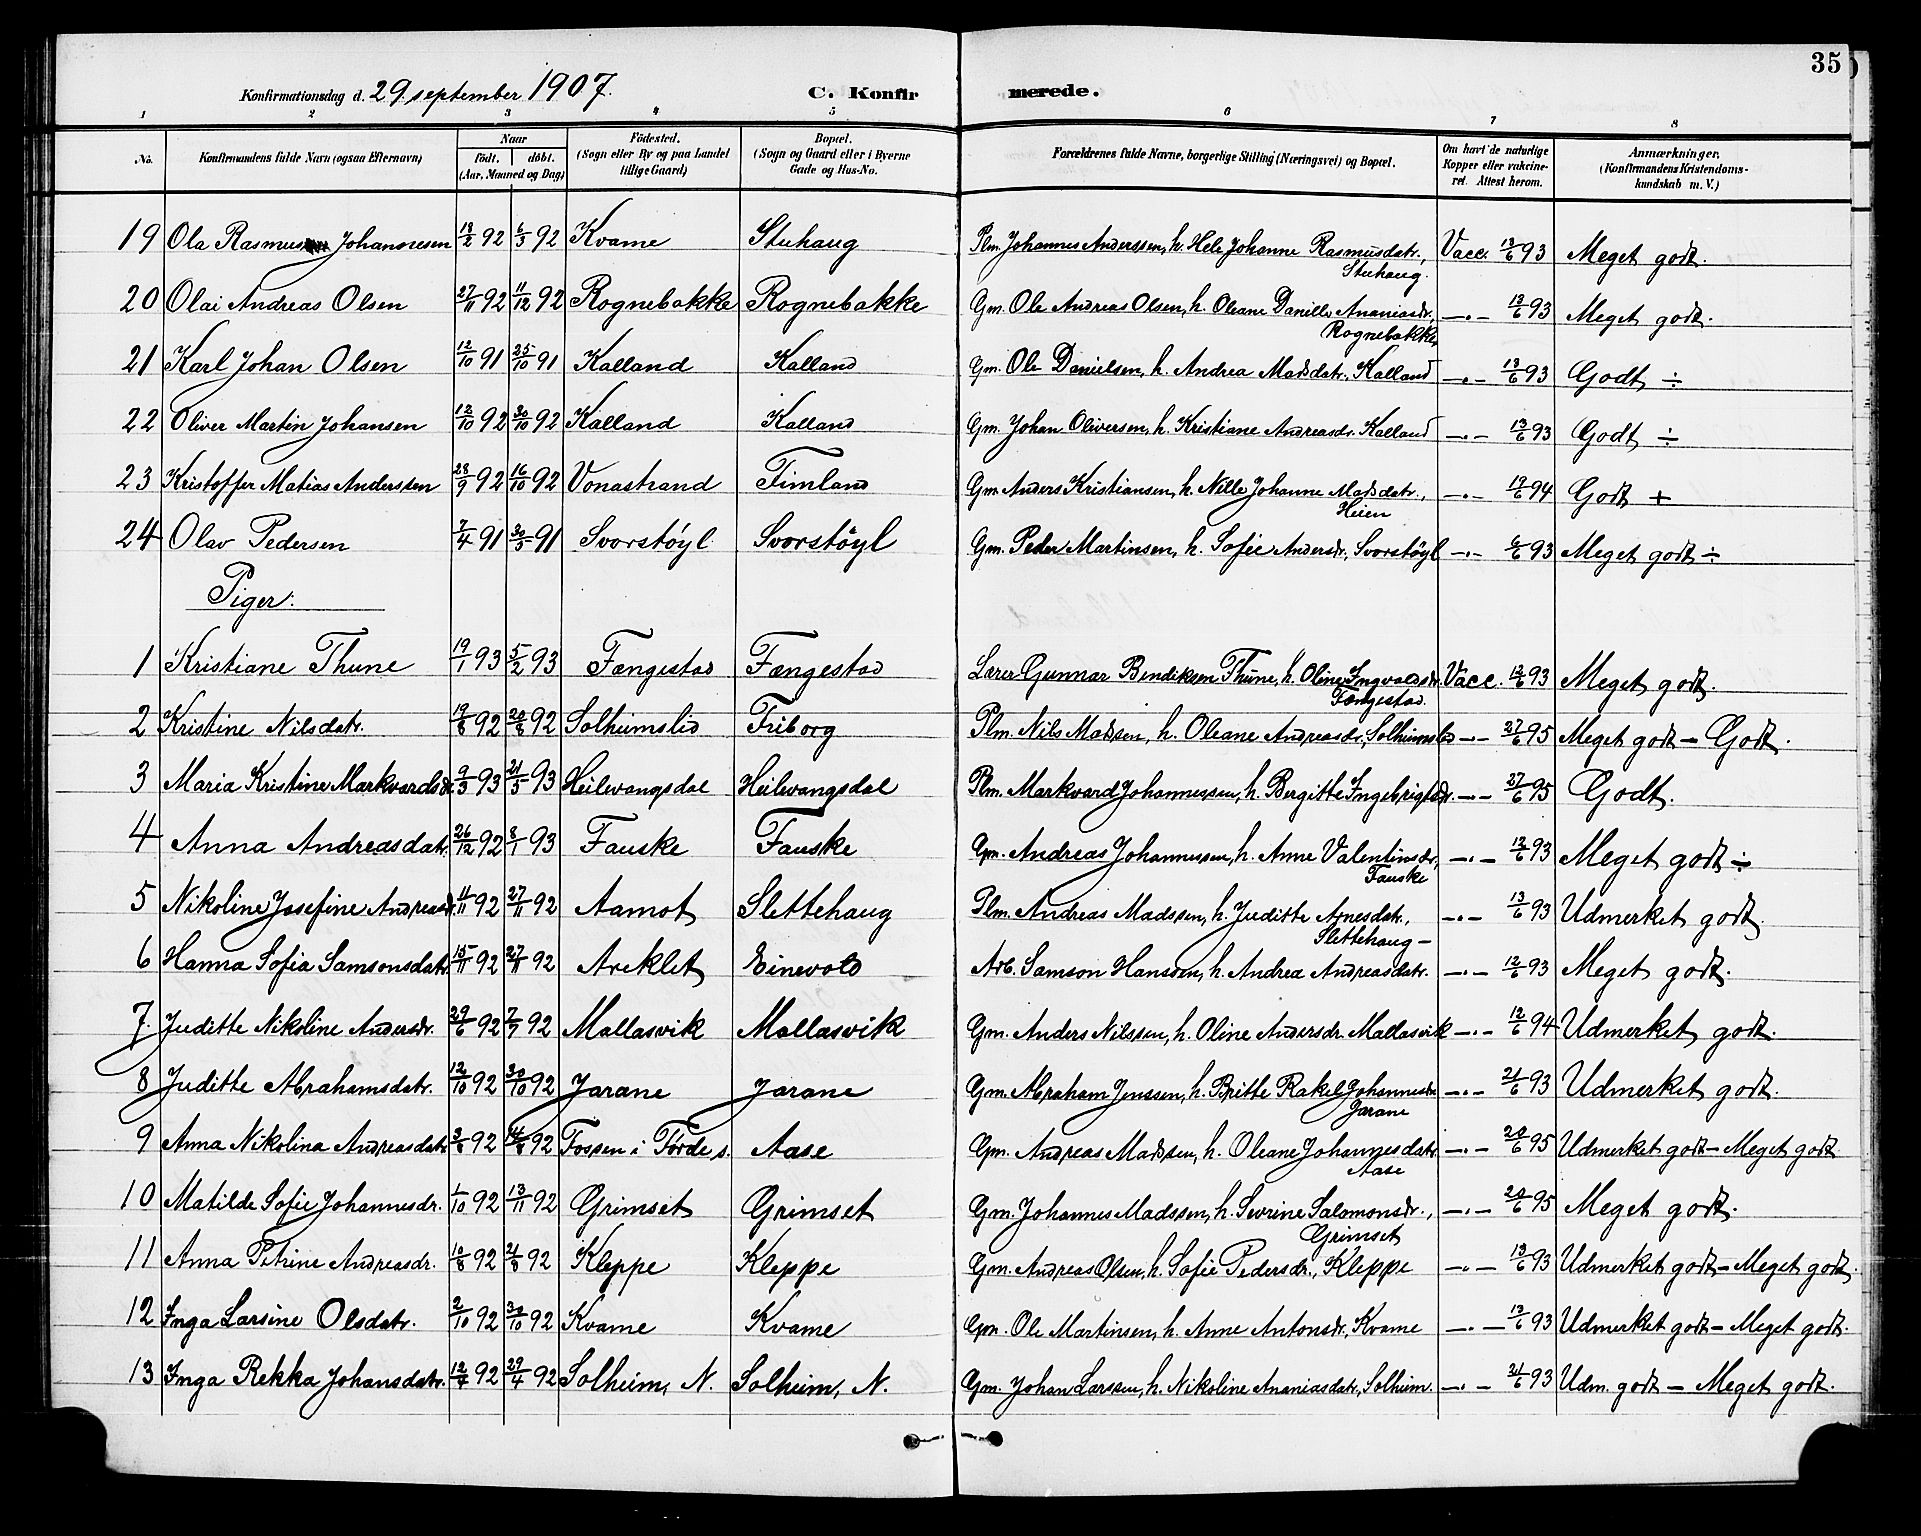 35
Konfirmationsdag d. 29 september 1907. C. Konfirmerede.
1 2 3 4 5 6 7 8
No. Konfirmandens fulde Navn (ogsaa Efternavn) Naar födt. döbt. (Aar, Maaned og Dag) Födested. (Sogn eller By og paa Landet tillige Gaard) Bopæl. (Sogn og Gaard eller i Byerne Gade og Hus-No. Forældrenes fulde Navne, borgerlige Stilling (Næringsvei) og Bopæl. Om havt de naturlige Kopper eller vakcineret. Attest herom. Anmærkninger. (Konfirmandens Kristendomskundskab m. V.)
19 Ola Rasmus Johannesen 18/2 92 6/3 92 Kvame Stuhaug Plm. Johannes Anderssen, h. Hele Johanne Rasmusdatr., Stuhaug. Vacc. 13/6 93 Meget godt.
20 Olai Andreas Olsen 27/11 92 11/12 92 Rognebakke Rognebakke Gm. Ole Andreas Olsen, h. Oleane Danille Ananiasdr., Rognebakke —"— 13/6 93 Meget godt.
21 Karl Johan Olsen 12/10 91 25/10 91 Kalland Kalland Gm. Ole Danielsen, h. Andrea Madsdatr., Kalland —"— 13/6 93 Godt ÷
22 Oliver Martin Johansen 12/10 92 30/10 92 Kalland Kalland Gm. Johan Oliversen, h. Kristiane Andreasdr. Kalland —"— 13/6 93 Godt ÷
23 Kristoffer Matias Anderssen 28/9 92 16/10 92 Vonastrand Timland Gm. Anders Kristiansen, h. Nille Johanne Madsdatr., Heien —"— 19/6 94 Godt +
24 Olav Pedersen 7/4 91 30/5 91 Svorstöyl Svorstöyl Gm. Peder Martinsen, h. Sofie Andersdr., Svorstöyl —"— 6/6 93 Meget godt ÷
Piger:
1 Kristiane Thune 19/1 93 5/2 93 Fængestad Fængestad Lærer Gunnar Bendiksen Thune, h. Oline Ingvaldsdr. Fængestad. Vacc. 12/6 93 Meget godt.
2 Kristine Nilsdatr. 19/8 92 20/8 92 Solheimslid Friborg Plm. Nils Madssen, h. Oleane Andreasdr., Solheimslid —"— 27/6 95 Meget godt - Godt.
3 Maria Kristine Markvardsdr. 9/3 93 21/5 93 Heilevangsdal Heilevangsdal Plm. Markvard Johannessen, h. Bergitte Ingebrigtsdr. —"— 27/6 95 Godt.
4 Anna Andreasdatr. 26/12 92 8/1 93 Fauske Fauske Gm. Andreas Johannessen, h. Anne Valentinsdr., Fauske —"— 12/6 93 Meget godt ÷
5 Nikoline Josefine Andreasdr. 11/11 92 27/11 92 Aamot Slettehaug Plm. Andreas Madssen, h. Juditte Arnesdatr., Slettehaug — —"— 13/6 93 Udmerket godt.
6 Hanna Sofia Samsonsdatr. 15/11 92 27/11 92 Areklet Einevold Arb. Samson Hanssen, h. Andrea Andreasdatr. —"— 12/6 93 Meget godt.
7. Juditte Nikoline Andersdr. 29/6 92 7/7 92 Mallasvik Mallasvik Gm. Anders Nilssen, h. Oline Andersdr. Mallasvik —"— 12/6 94 Udmerket godt.
8 Juditte Abrahamsdatr. 12/10 92 30/10 92 Jarane Jarane Gm. Abraham Jenssen, h. Britte Rakel Johannesdr. Jarane —"— 21/6 93 Udmerket godt.
9 Anna Nikolina Andreasdatr. 3/8 92 14/8 92 Fossen i Förde s. Aase Gm. Andreas Madssen, h. Oleane Johannesdatr. Aase —"— 20/6 95 Udmerket godt - Meget godt
10 Matilde Sofie Johannesdr. 1/10 92 13/11 92 Grimset Grimset Gm. Johannes Madssen, h. Sevrine Salomonsdr., Grimset —"— 20/6 95 Meget godt.
11 Anna Petrine Andreasdr. 10/8 92 21/8 92 Kleppe Kleppe Gm. Andreas Olsen, h. Sofie Pedersdr., Kleppe —"— 13/6 93 Udmerket godt - Meget godt.
12 Inga Larsine Olsdatr. 2/10 92 30/10 92 Kvame Kvame Gm. Ole Martinsen, h. Anne Antonsdr., Kvame —"— 13/6 93 Udmerket godt - Meget godt.
13 Inga Rekka Johansdatr. 12/4 92 29/4 92 Solheim, N. Solheim, N. Gm. Johan Larssen, h. Nikoline Ananiasdatr., Solheim. —"— 21/6 93 Udm. godt - Meget godt.